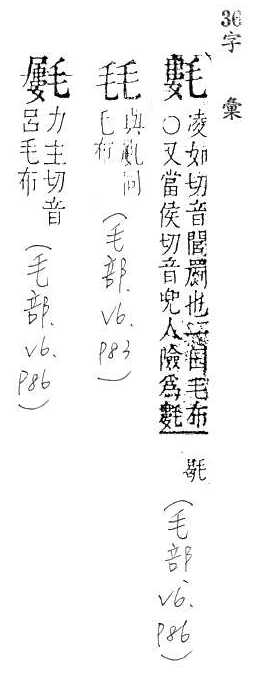 36字彙
氀
凌如切音閭罽也一曰毛布
○又當侯切音兜人險為氀
(毛部.v6.p86)
與同
毛布
(毛部.v6.p83)
力主切音
呂毛布
(毛部.v6.p86)